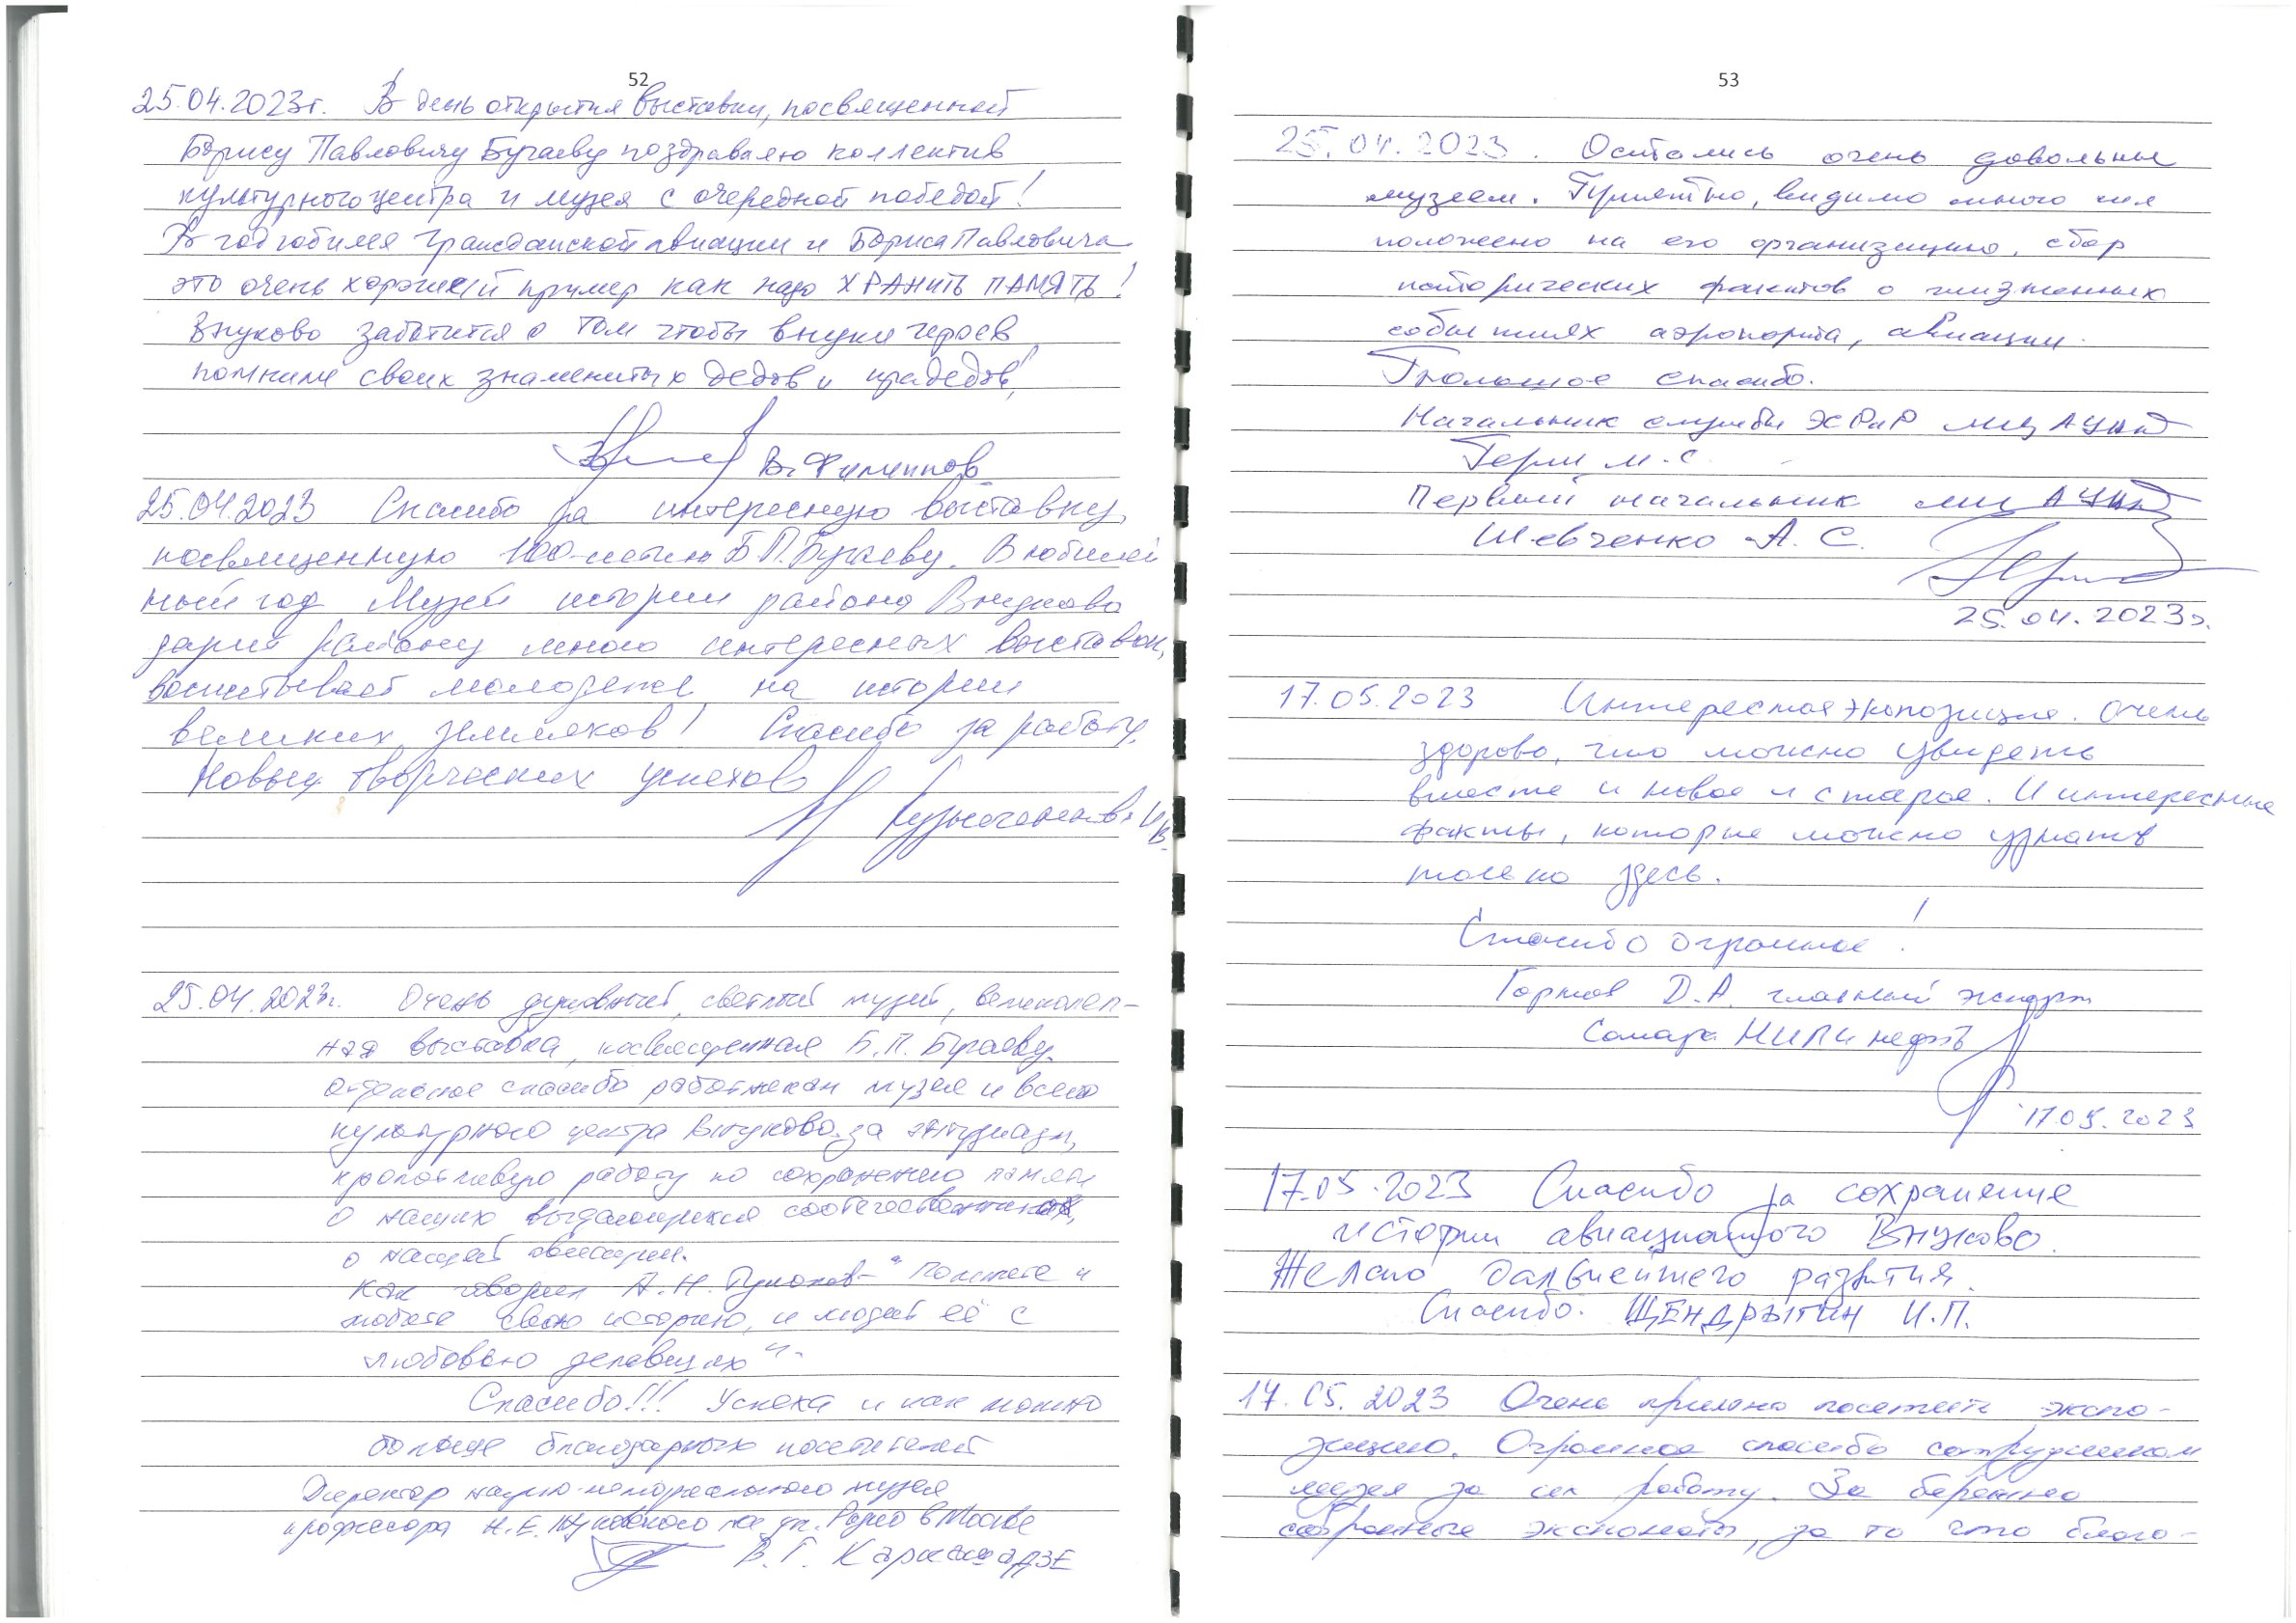 52
25.04.2023г. В день открытия выставки, посвященной
Борису Павловичу Бугаеву поздравляю коллектив
культурного центра и музея с очередной победой!
В год юбилея Гражданской авиации и Бориса Павловича
это очень хороший пример как надо ХРАНИТЬ ПАМЯТЬ!
Внуково заботится о том чтобы внуки героев
помнили своих знаменитых дедов и прадедов!
В. Филиппов
25.04.2023 Спасибо за интересную выставку,
посвященную 100-летию Б.П. Бугаеву. В юбилей
ный год Музей истории района Внуково
дарит району много интересных выставок,
воспитывает молодежь на истории
великих земляков! Спасибо за работу.
Новых творческих успехов
25.04.2023г. Очень душевный, светлый музей, великолеп-
ная выставка, посвященная Б.П. Бугаеву.
Отдельное спасибо работникам музея и всего
культурного центра Внуково за энтузиазм,
кропотливую работу по сохранению памяти
о наших выдающихся соотечественниках,
о нашей авиации.
Как говорил А.Н. Туполев - "Помните и
любите свою историю, и людей её с
любовью делавших".
Спасибо!!! Успеха и как можно
больше благодарных посетителей
Директор научно-мемориального музея
профессора Н.Е. Жуковского на ул. Радио в Москве
В.Г.
53
25.04.2023. Остались очень довольны
музеем. Приятно, видимо много сил
положено на его организацию, сбор
исторических фактов о жизненных
событиях аэропорта, авиации.
Большое спасибо.
Начальник службы ЭХРиР МЦ АУВД
М.С.
Первый начальник МЦ АУВД
Шевченко А.С.
25.04.2023г.
17.05.2023 Интересная экпозиция. Очень
здорово, что можно увидеть
вместе и новое и старое. И интересные
факты, которые можно узнать
только здесь.
Спасибо огромное!
Д.А. главный эксперт
Самара НИПИ нефть
17.05.2023
17.05.2023 Спасибо за сохранение
истории авиационного Внуково.
Желаю дальнейшего развития.
Спасибо. ЩЕНДРЫГИН И.П.
17.05.2023 Очень приятно посетить экспо-
зицию. Огромное спасибо сотрудникам
музея за их работу. За бережно
собранные экспонаты, за то что благо-